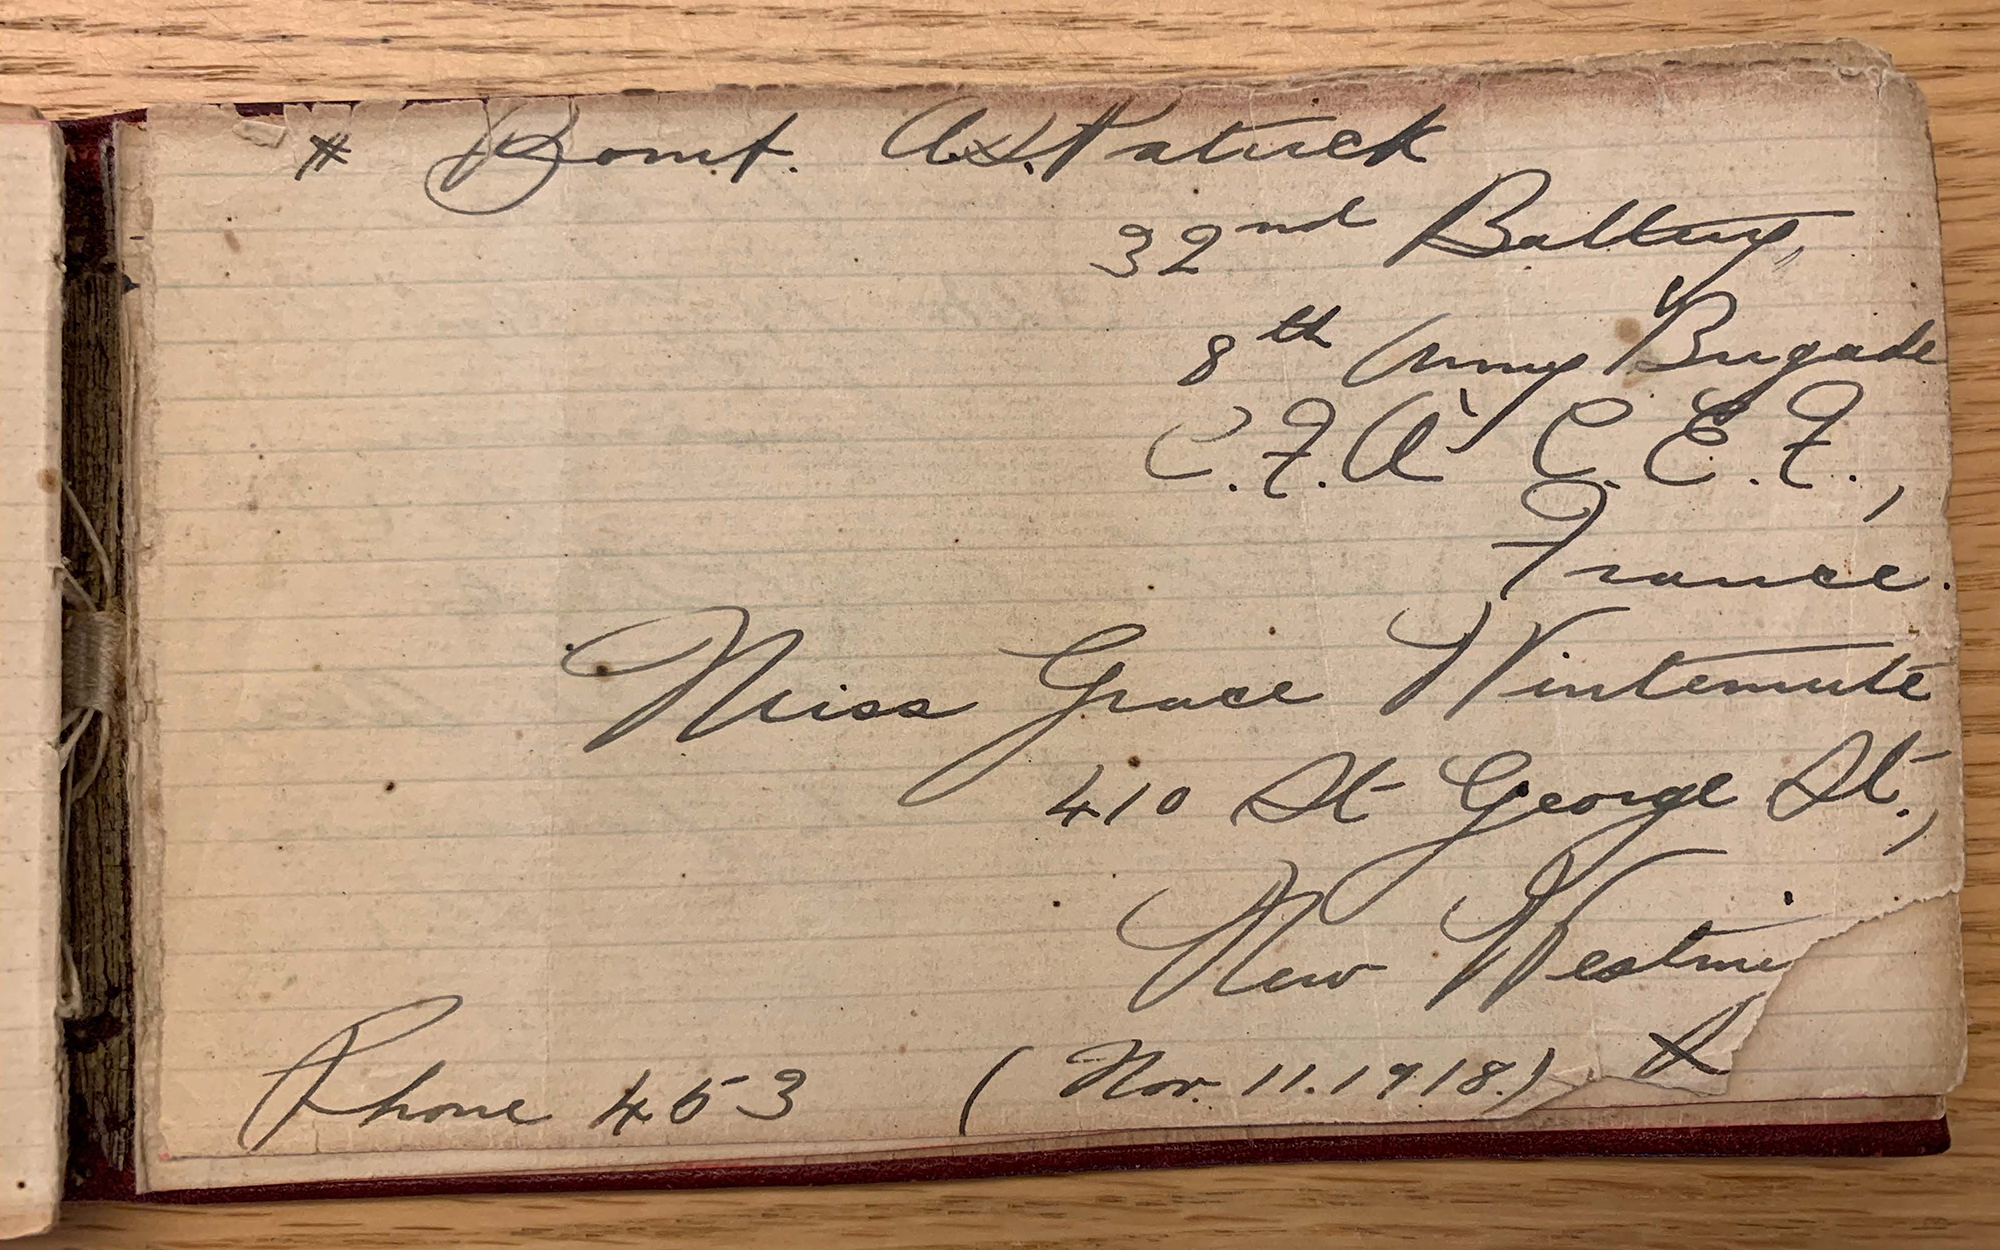 # Bomb. A.L. Patrick
32nd Battery,
8th Army Brigade
C.F.A. C.E.F.,
France.
Miss Grace Wintemute
410 St George St.,
New Westmi
Phone 453 (Nov. 11. 1918.)